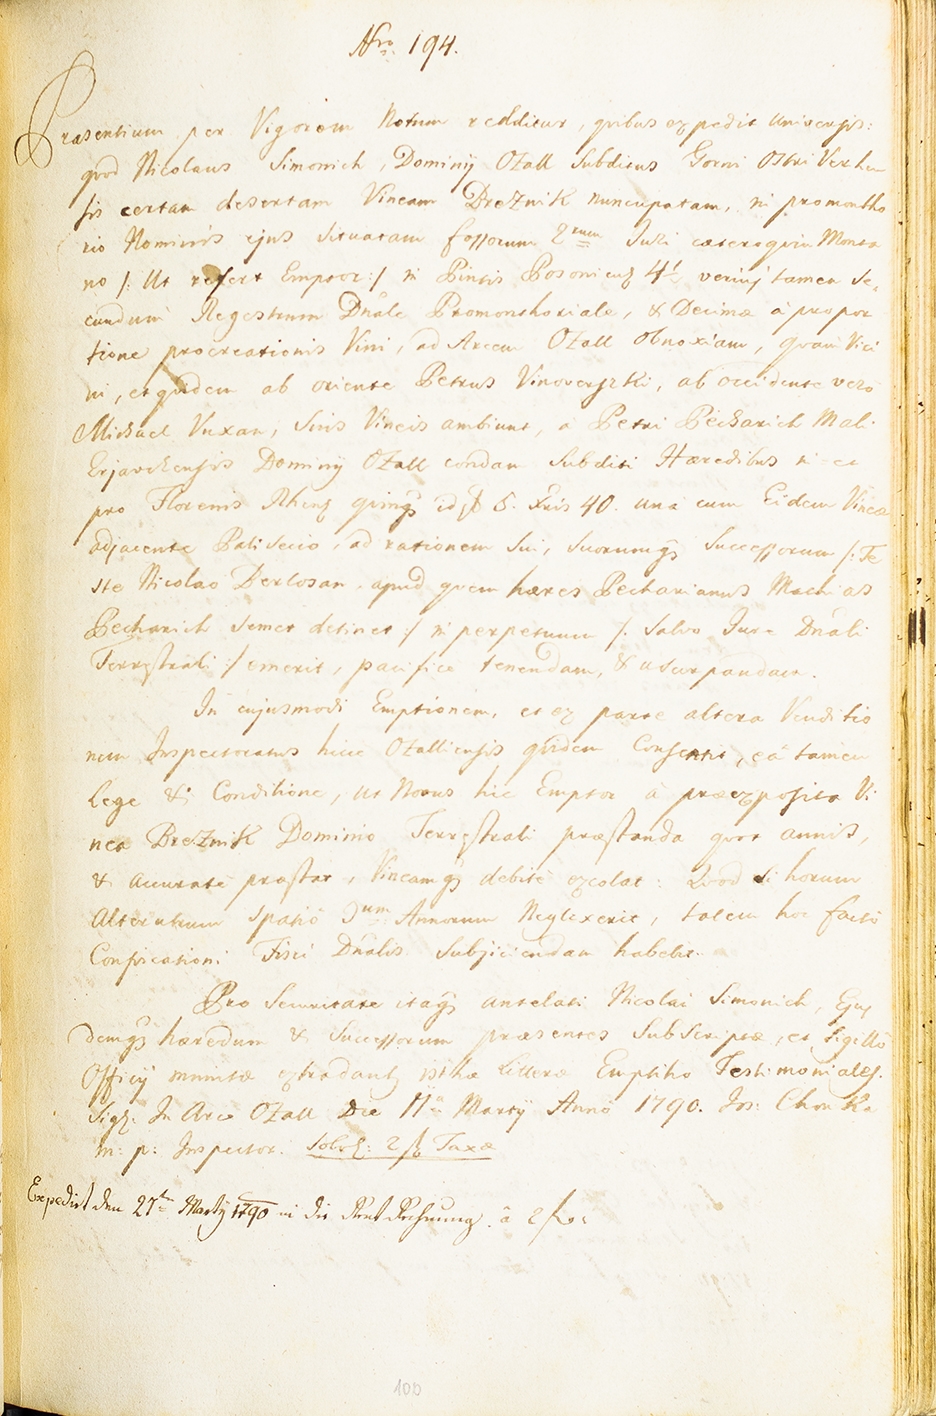 Nro. 194.
Præsentium per Vigorem Notum redditur, quibus expedit Universis:
quod Nicolaus Simonich, Dominij Ozall Subditus Gorni Oštri Verhen
sis certam desertam Vineam Breznik nuncupatam, in promontho
rio Nominis ejus situatam fossorum 2rum Juri cæteroquin Monta
no /: Ut refert Emptor :/ in Pintis Posonien 4½ verius tamen Se-
cundum Regestrum Dnāle Promonthoriale, & Decimæ à propor
tione procreationis Vini, ad Arcem Ozall Obnoxiam, quam Vici
ni, et quidem ab oriente Petrus Vinoverszki, ab occidente vero
Michael Vuxan, Suis Vineis ambiunt, a Petri Pécharich Mali
Erjavchensis Dominij Ozall condam Subditi Hæredibus in et
pro Florenis Rhen quinq id f 5. Xris 40. una cum Eidem Vineæ
adjacente Palisecio, ad rationem Sui, Suorumq Successorum /: Te
ste Nicolao Dertosan, apud quem hæres Pecharianus Mathias
Pecharich semet detinet :/ in perpetuum /: Salvo Jure Dnāli
Terrestrali :/ emerit, pacifice tenendam, & usurpandam.
In cujusmodi Emptionem, et ex parte altera Venditio
nem Inspectoratus hicce Ozalliensis quidem Consentit, eâ tamen
Lege & Conditione, ut Novus hic Emptor à præexposita Vi
nea Breznik Dominio Terrestrali præstanda quot annis,
& accurate præstet, Vineamq debitè excolat: Quod si horum
Alterutrum Spatio 3um Annorum Neglexerit, talem hoc facto
Confiscationi Fisci Dnālis Subjiciendam habebit.
Pro Securitate itaq antelati Nicolai Simonich, Ejus
demq hæredum & Successorum præsentes Subscriptæ, et sigillo
Officij munitæ extradantur isthæ Litteræ Emptiho Testimoniales.
Sig: In Arce Ozall Die 17a Martij Anno 1790. Jos: Chonka
m: p: Inspector. Solvt: 2 f Taxæ
Expedirt den 27ten Martij 1790 in die Rent Rechnung à 2 f
100